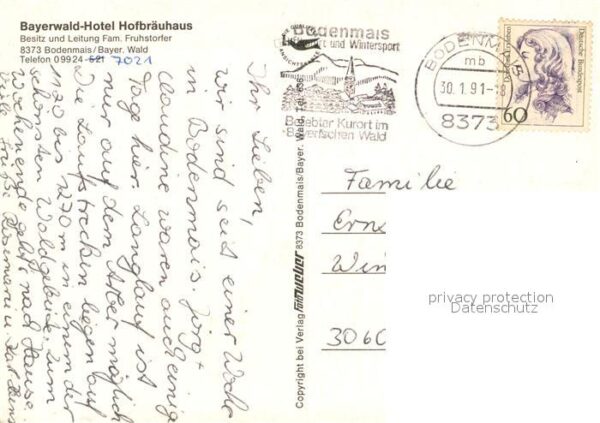 Bayerwald-Hotel Hofbräuhaus
Besitz und Leitung Fam. Fruhstorfer
8373 Bodenmais/Bayer. Wald
Telefon 09924-521 7021
Ihr Lieben!
Wir sind seit einer Woche
in Bodenmais. Jörg +
Claudine waren auch einige
Tage hier. Langlauf ist
nur auf dem Arber möglich
Die Laufstrecken liegen auf
1070 bis 1270 m in einem der
schönsten Waldgebiete. Zum
Wochenende geht's nach Hause.
Viele Grüße Rosemarie u. Karl Heinz
Copyright bei Verlag 8373 Bodenmais/Bayer. Wald, Tel.
Bodenmais
und Wintersport
Beliebter Kurort im
Bayerischen Wald
BODENMAIS
mb
30.1.91-18
8373
Deutsche Bundespost
60
Familie
Erne
Win
3060
privacy protection
Datenschutz